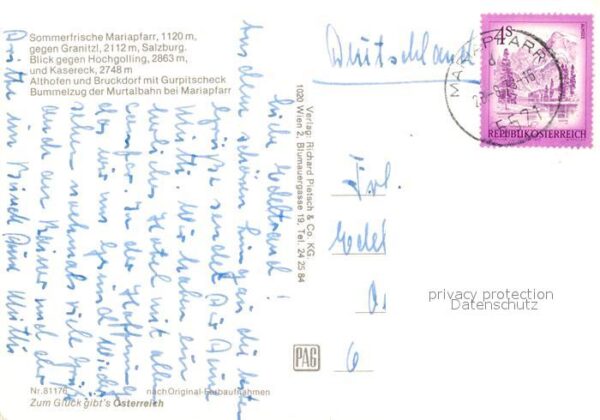 Sommerfrische Mariapfarr, 1120 m,
gegen Granitzl, 2112 m, Salzburg.
Blick gegen Hochgolling, 2863 m,
und Kasereck, 2748 m
Althofen und Bruckdorf mit Gurpitscheck
Bummelzug der Murtalbahn bei Mariapfarr
Liebe Edeltraud!
Aus dem schönen Lungau die besten
Grüße sendet Dir Deine
Mutti. Wir haben ein
Hotel mit allem
in der Hoffnung
das wir uns gesund wieder
sehen nochmals viele Grüße
auch an Rainer und
Deine Mutti
Verlag: Richard Pietsch & Co. KG.
1020 Wien 2, Blumauergasse 19, Tel. 24 25 84
Deutschland
4 S
REPUBLIK ÖSTERREICH
MARIAPFARR
5571
Frl.
Edel
privacy protection
Datenschutz
PAG
Nr. 81176 nach Original-Farbaufnahmen
Zum Glück gibt's Österreich